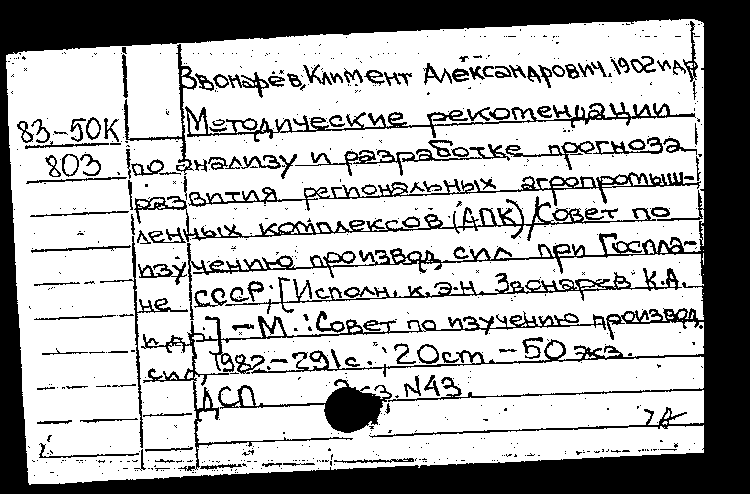 Звонарев, Климент Александрович, 1902 и др.
83-50К
Методические рекомендации
803
по анализу и разработке прогноза
развития региональных агропромыш-
ленных комплексов (АПК)/Совет по
изучению производ. сил при Госпла-
не СССР; [Исполн. к.э.н. Звонарев К.А.
и др.]. - М.: Совет по изучению производ.
сил, 1982. - 291 с.; 20 см. - 50 экз.
ДСП. Экз. N43.